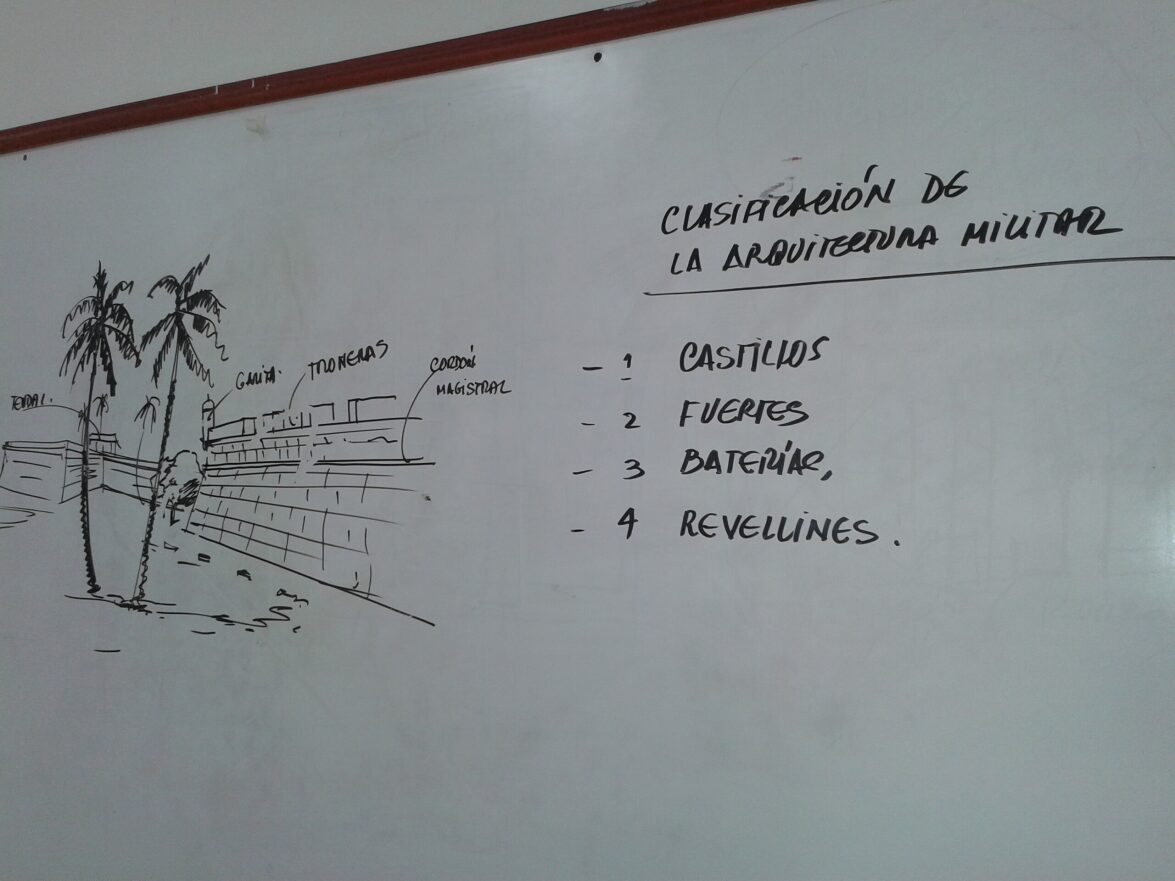 CLASIFICACIÓN DE
LA ARQUITECTURA MILITAR
- 1 CASTILLOS
- 2 FUERTES
- 3 BATERÍAS,
- 4 REVELLINES.
GARITA.
TRONERAS
CORDÓN
MAGISTRAL